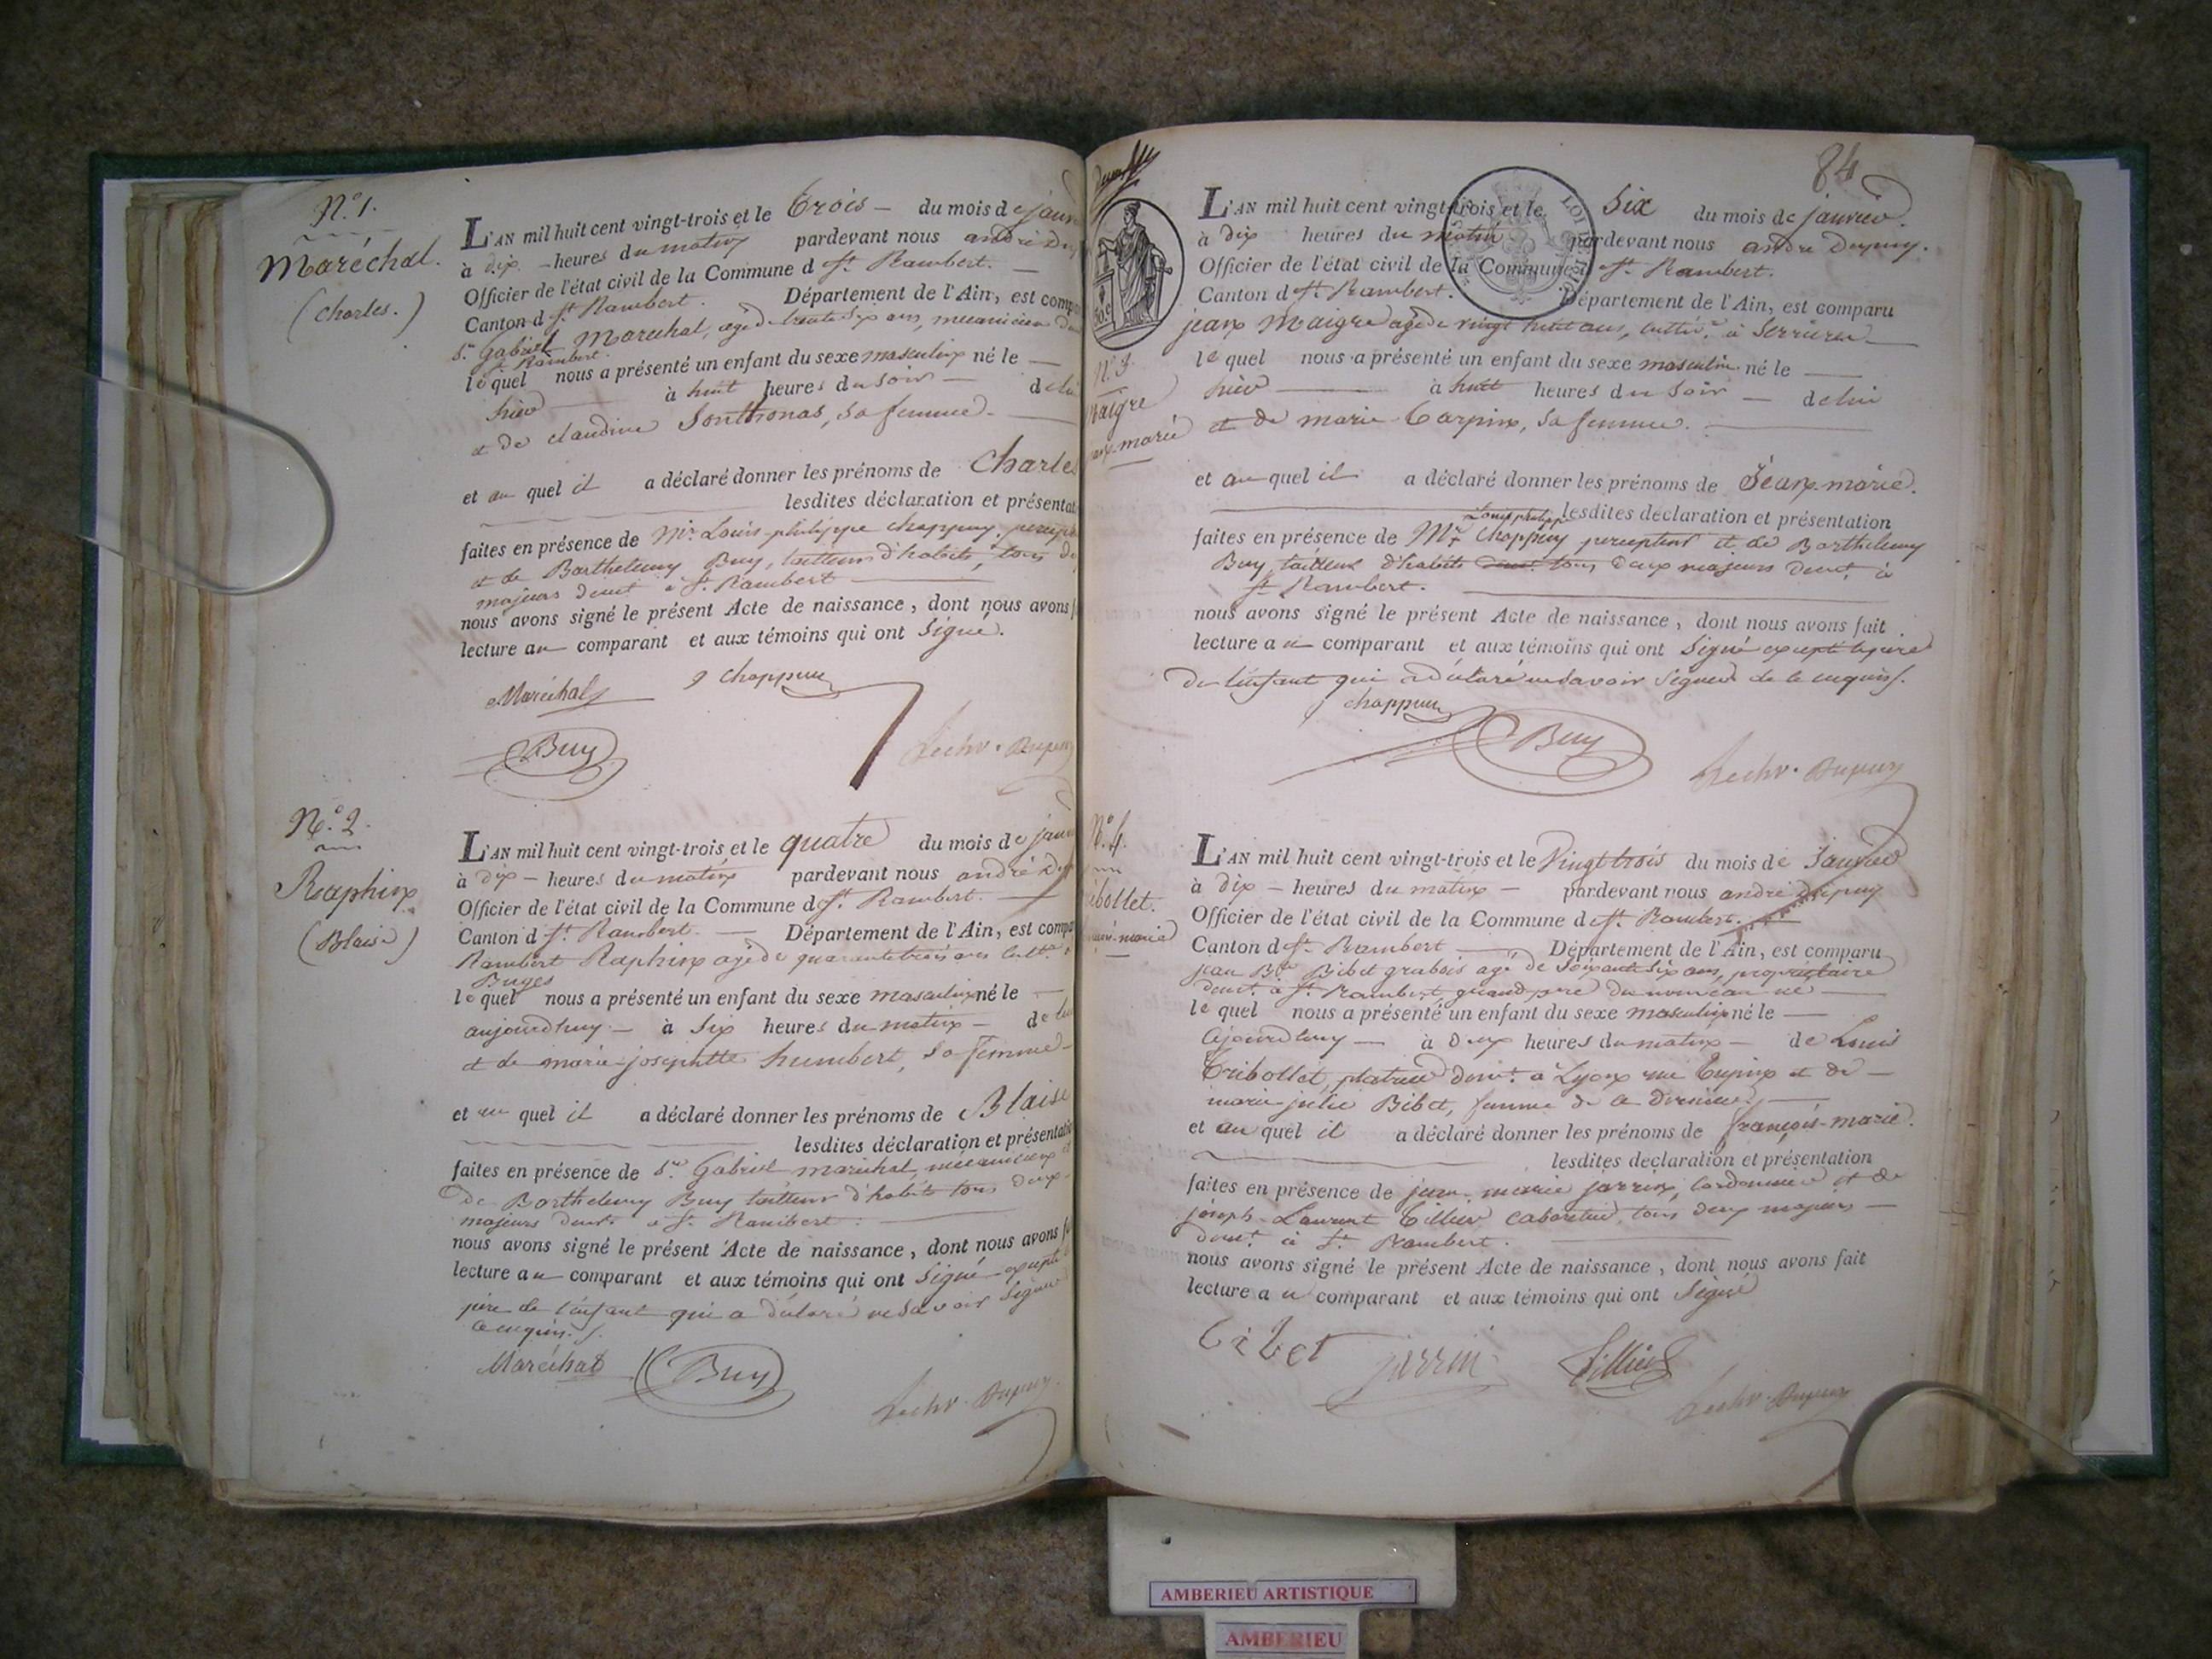 N.° 1.
Maréchal.
(Charles.)
L'AN mil huit cent vingt-trois et le trois — du mois de janv
à dix — heures du matin pardevant nous andré Du
Officier de l'état civil de la Commune d St. Rambert. —
Canton d St. Rambert. Département de l'Ain, est comp
Sr. Gabriel Marechal, agé de trente six ans, mecanicien
St. Rambert.
lequel nous a présenté un enfant du sexe masculin né le —
hier à huit heures du soir — de lui
et de claudine Sonthonas, sa femme. —
et au quel il a déclaré donner les prénoms de Charles
lesdites déclaration et présentat
faites en présence de Mr. Louis-philippe chappuy, percept
et de Barthelemy Buy, tailleur d'habits, tous de
majeurs demt. à St. Rambert —
nous avons signé le présent Acte de naissance, dont nous avons f
lecture au comparant et aux témoins qui ont Signé.
Maréchal chappuy
Buy Dupuy
N.° 2.
Raphin
(Blaise)
L'AN mil huit cent vingt-trois et le quatre du mois de janv
à dix — heures du matin pardevant nous andré Du
Officier de l'état civil de la Commune d St. Rambert. —
Canton d St. Rambert. — Département de l'Ain, est compa
Rambert Raphin agé de quarante trois ans cultr.
Buges
lequel nous a présenté un enfant du sexe masculin né le —
aujourdhuy — à Six heures du matin — de lui
et de marie-josephtte humbert, sa femme —
et au quel il a déclaré donner les prénoms de Blaise
lesdites déclaration et présentatio
faites en présence de Sr. Gabriel marechal, mécanicien et
de Barthelemy Buy tailleur d'habits tous deux
majeurs demt. à St. Rambert. —
nous avons signé le présent Acte de naissance, dont nous avons f
lecture au comparant et aux témoins qui ont Signé excepté
père de l'enfant qui a déclaré ne savoir Signer
ce enquis.
Maréchal Buy
Dupuy
84
LOI
N.° 3.
Maigre
jean marie
L'AN mil huit cent vingt-trois et le Six du mois de janvier.
à dix heures du matin pardevant nous andré Dupuy.
Officier de l'état civil de la Commune d St. Rambert.
Canton d St. Rambert. Département de l'Ain, est comparu
jean Maigre agé de vingt huit ans, cultivr. à Serrieres —
lequel nous a présenté un enfant du sexe masculin né le —
hier — à huit heures du soir — de lui
et de marie Carpin, sa femme. —
et au quel il a déclaré donner les prénoms de Jean-marie.
Louis philippe lesdites déclaration et présentation
faites en présence de Mr. Chappuy percepteur et de Barthelemy
Buy, tailleur d'habits demt. tous deux majeurs demt. à
St. Rambert. —
nous avons signé le présent Acte de naissance, dont nous avons fait
lecture au comparant et aux témoins qui ont Signé excepté le père
de l'enfant qui a déclaré ne savoir Signer de ce enquis.
chappuy
Buy
Dupuy
N.° 4.
L'AN mil huit cent vingt-trois et le Vingt trois du mois de Janvier
à dix — heures du matin — pardevant nous andré Dupuy
Officier de l'état civil de la Commune d St. Rambert.
Canton d St. Rambert — Département de l'Ain, est comparu
jean Bte. Bibet grabois agé de soixante six ans, propriétaire
demt. à St. Rambert, grand père du nouveau né —
lequel nous a présenté un enfant du sexe masculin né le —
Ajourdhuy — à deux heures du matin — de Louis
Tribollet, platrier demt. à Lyon rue Tupin et de —
marie julie Bibet, femme de ce dernier. —
et au quel il a déclaré donner les prénoms de françois-marie.
lesdites déclaration et présentation
faites en présence de jean-marie jarrin, cordonnier et de
joseph Laurent Tillier cabaretier, tous deux majeurs —
demt. à St. Rambert. —
nous avons signé le présent Acte de naissance, dont nous avons fait
lecture au comparant et aux témoins qui ont Signé
bibet jarrin Tillier
Dupuy
AMBERIEU ARTISTIQUE
AMBERIEU